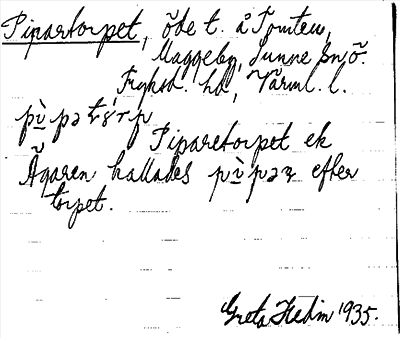 Pipartorpet, öde t. å Tomten,
Maggeby, Sunne sn, Ö.
Fryksd. hd, Värml. l.
Piparetorpet ek
Ägaren kallades efter
torpet.
Greta Hedin 1935.